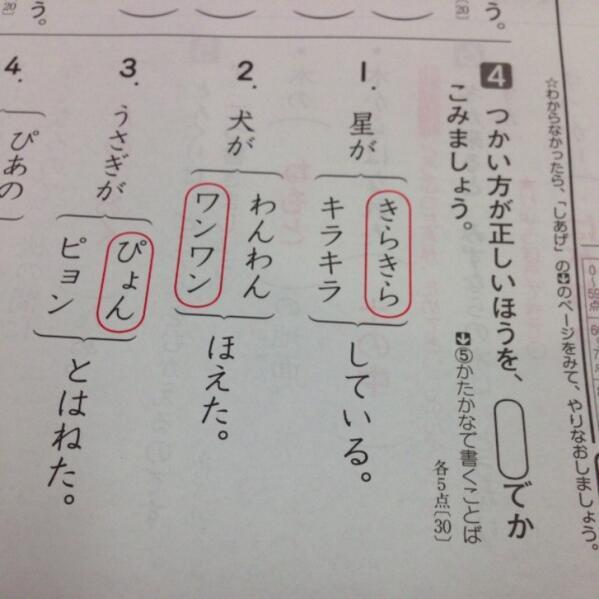 う。
[20]
☆わからなかったら、「しあげ」の⬇のページをみて、やりなおしましょう。
4 つかい方が正しいほうを、◯でか
こみましょう。
⬇⑤かたかなで書くことば
各5点[30]
1. 星が
きらきら
キラキラ
している。
2. 犬が
わんわん
ワンワン
ほえた。
3. うさぎが
ぴょん
ピョン
とはねた。
4.
ぴあの
う。
[20]